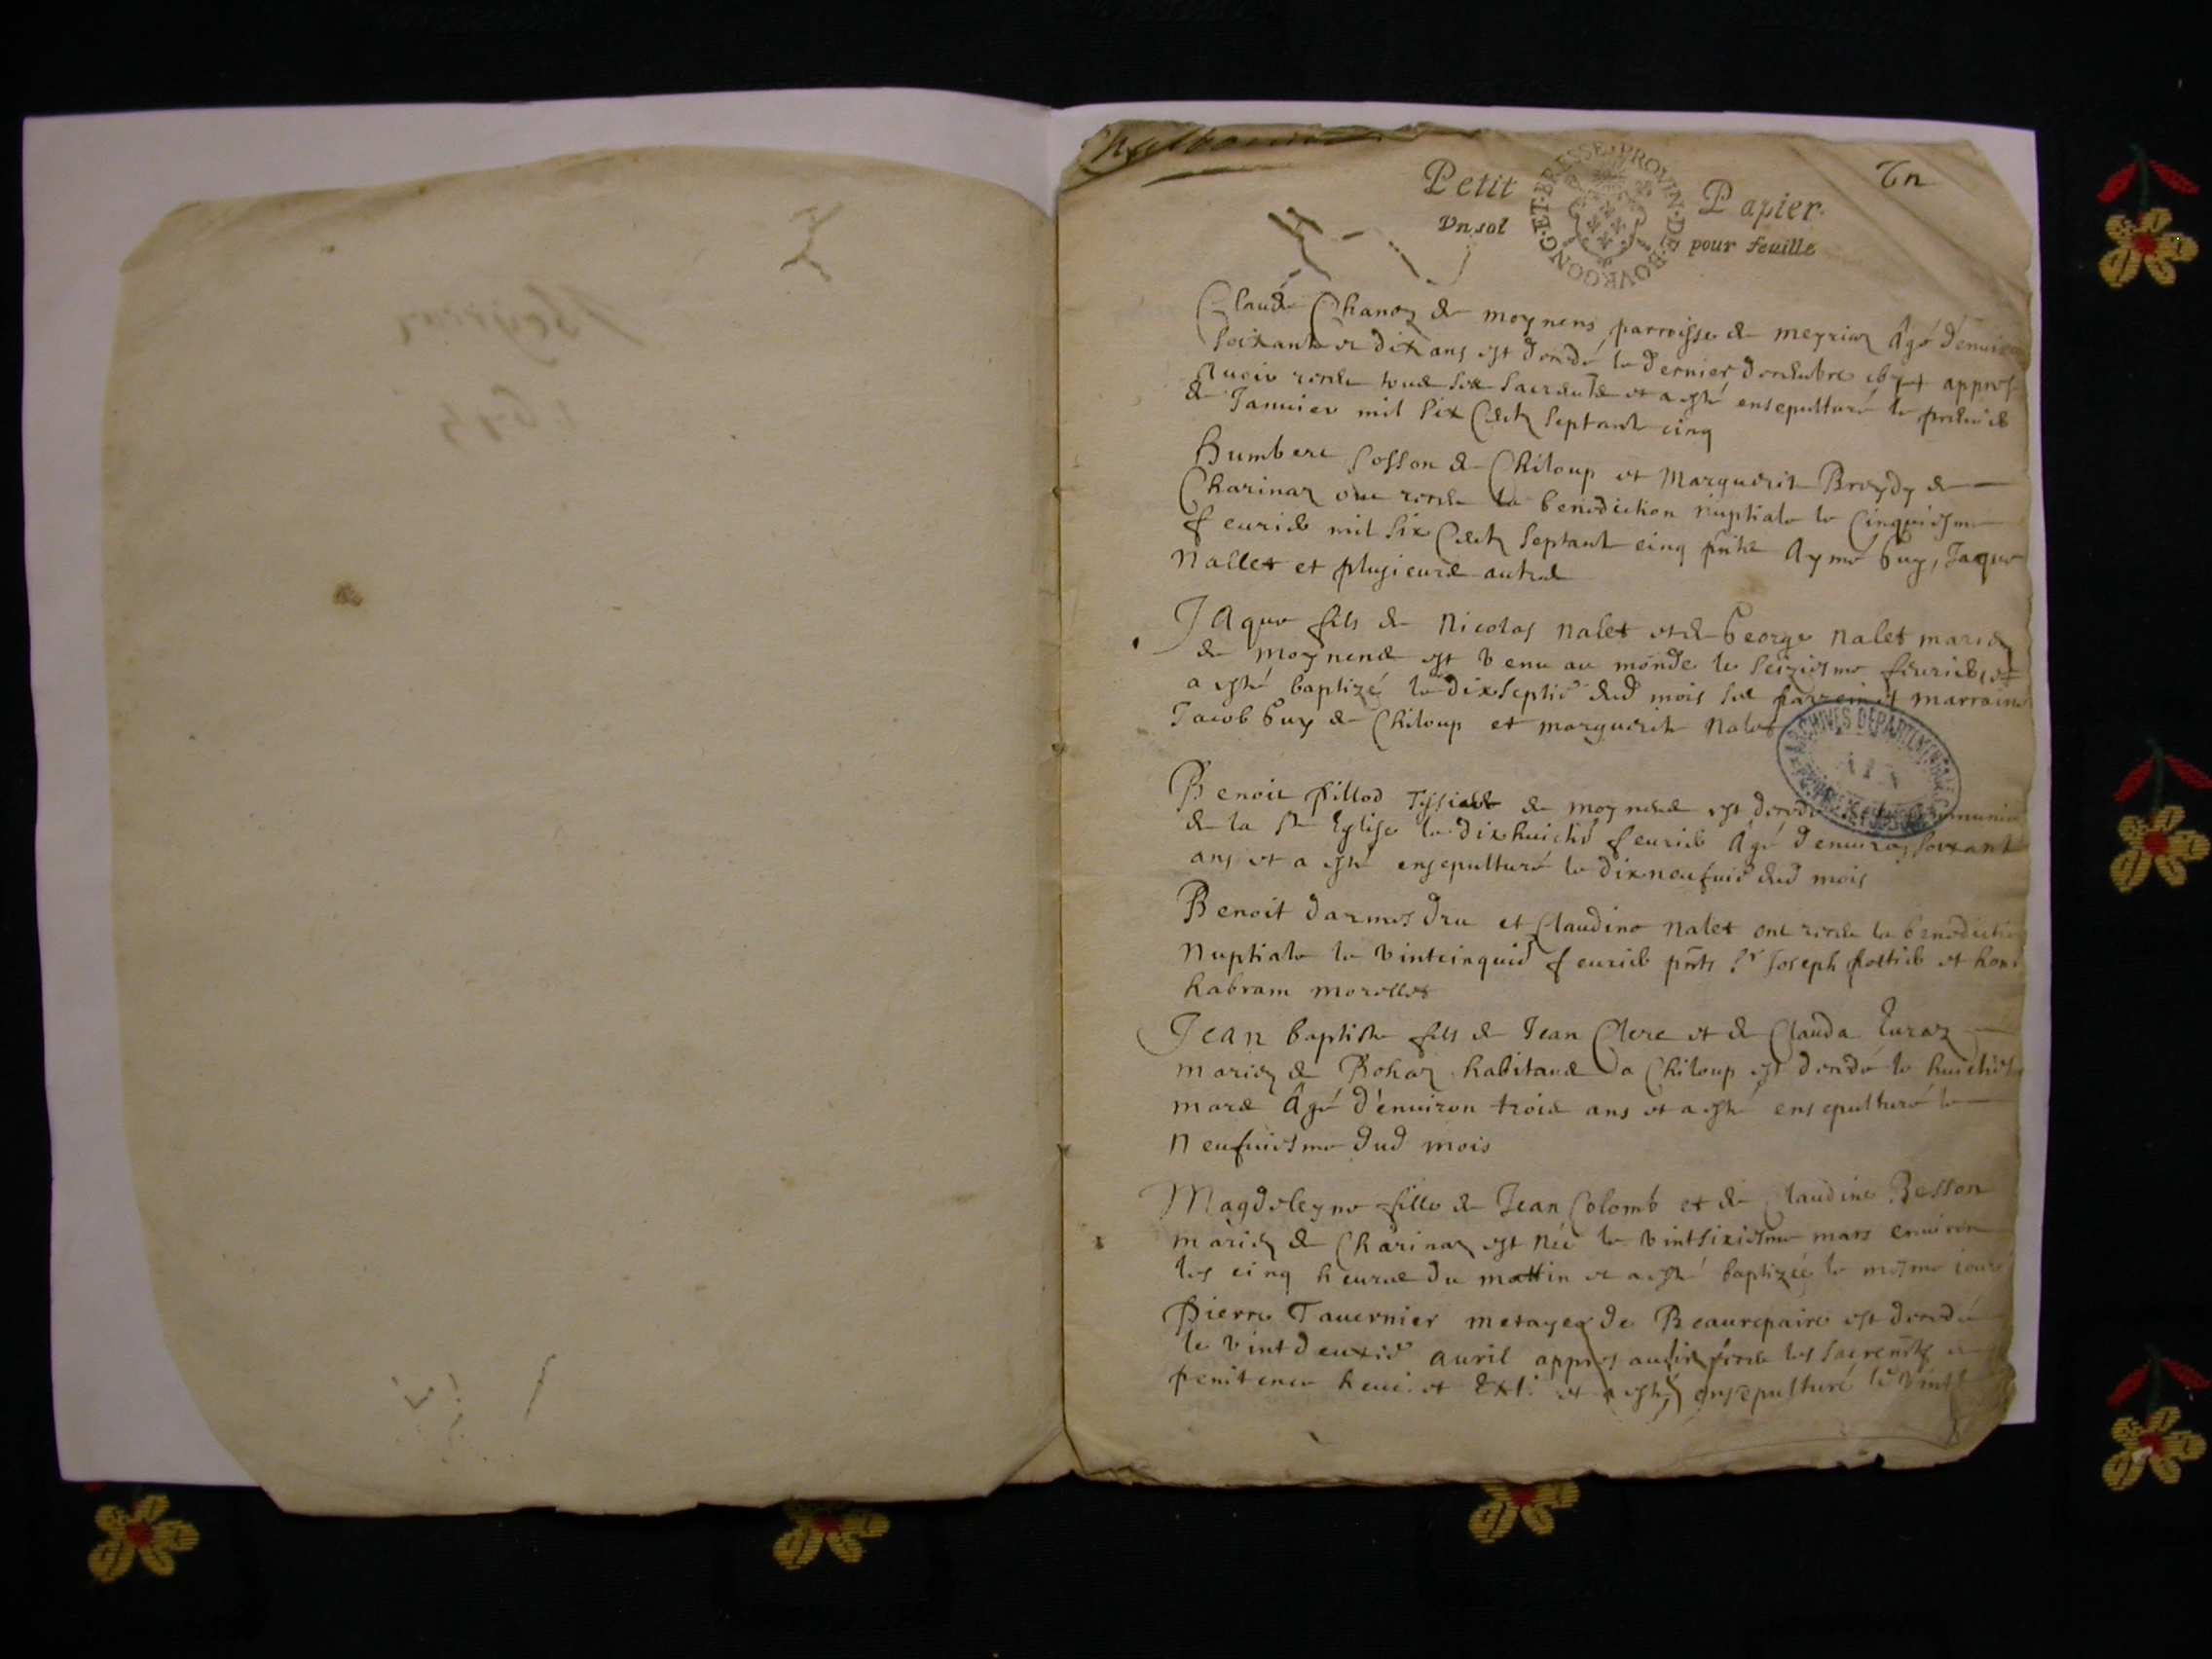 Petit Papier
Vn sol pour feuille
BOVRGONG·ET·BRESSE·PROVIN·DE
Claude Chanoz de moynens parroisse de meyriaz Âgé d'enuiron
soixante et dix ans est decedé le dernier decembre 1674 appres
auoir receu tous ses sacrements et a esté ensepulturé le premier
de Januier mil six Centz septante cinq
Humbert Cosson de Chiloup et Marguerite de
Charinaz ont receu la benediction nuptiale le Cinquiesme
feurier mil six Centz septante cinq pnts Aymé Guy, Jaque
Nallet et plusieurs autres
JAque fils de Nicolas nalet et de George nalet mariez
de moynens est venu au monde le seiziesme feurier et
a esté baptizé le dixseptie dud mois ses parrein et marraine
Jacob Guy de Chiloup et marguerite nalet
ARCHIVES DÉPARTEMENTALES
Benoit pillod de moynens est decedé
de la Ste Eglise le dixhuictie feurier Âgé d'enuiron soixante
ans et a esté ensepulturé le dixneufuie dud mois
Benoit darmes dru et Claudine nalet ont receu la benediction
Nuptiale le vintcinquie feurier pnts Sr Joseph et
habram morellet
Jean baptiste fils de Jean Clerc et de Clauda
mariez de Bohaz habitans a Chiloup est decedé le huictiesme
mars Âgé d'enuiron trois ans et a esté ensepulturé le
Neufuiesme dud mois
Magdeleyne fille de Jean Colomb et de Claudine Besson
mariez de Charinaz est née le vintsixiesme mars enuiron
les cinq heures du mattin et a esté baptizée le mesme iour
Pierre Tauernier metayer de Beaurepaire est decedé
le vintdeuxie auril appres auoir receu les sacrents
penitence heuc. et Ext. et a esté ensepulturé le vint